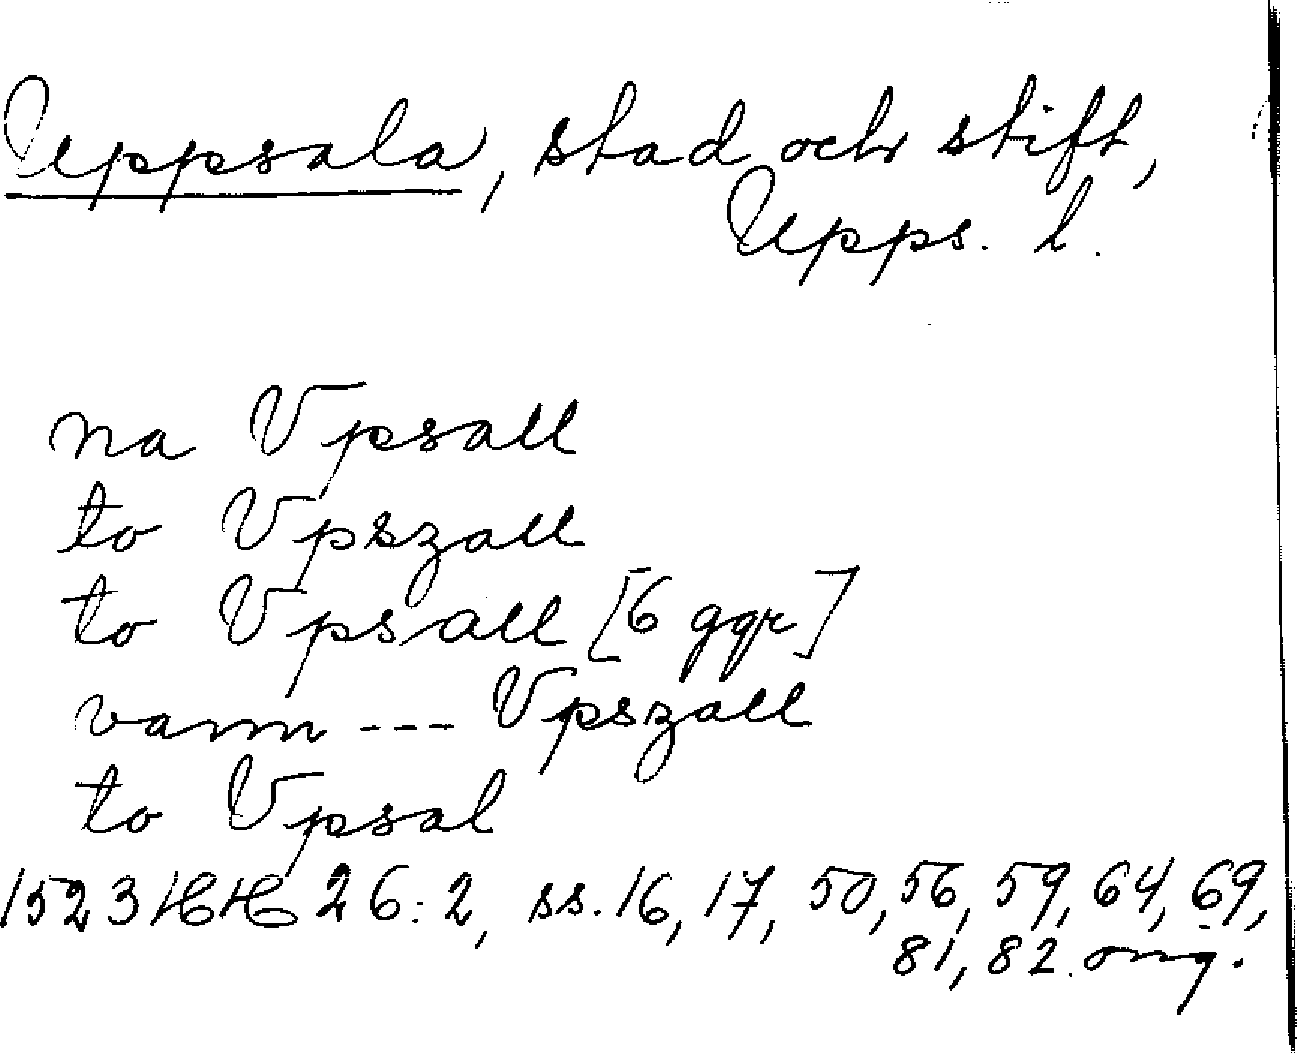 Uppsala, stad och stift,
Upps. l.
na Vpsall
to Vpszall
to Vpsall [6 ggr]
vann --- Vpszall
to Vpsal
1523 HH 26:2, ss. 16, 17, 50, 56, 59, 64, 69,
81, 82. orig.